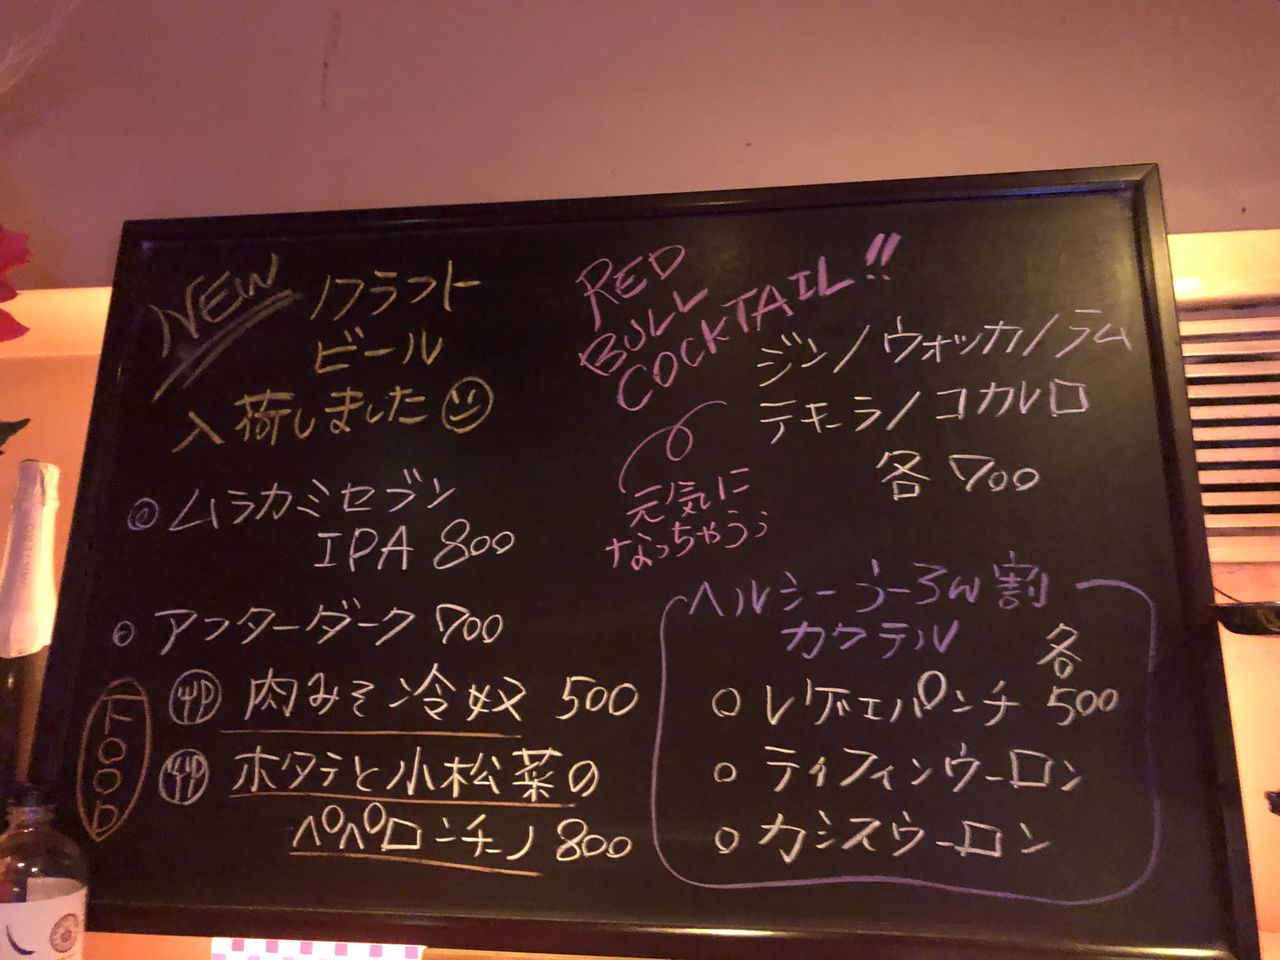 NEW クラフト
ビール
入荷しました
ムラカミセブン
IPA 800
アフターダーク 700
FOOD
肉みそ冷奴 500
ホタテと小松菜の
ペペロンチーノ 800
RED
BULL
COCKTAIL!!
ジン/ウォッカ/ラム
テキーラ/コカレロ
各700
元気に
なっちゃうぅ
ヘルシーうーろん割
カクテル
各
レゲエパンチ 500
ティフィンウーロン
カシスウーロン